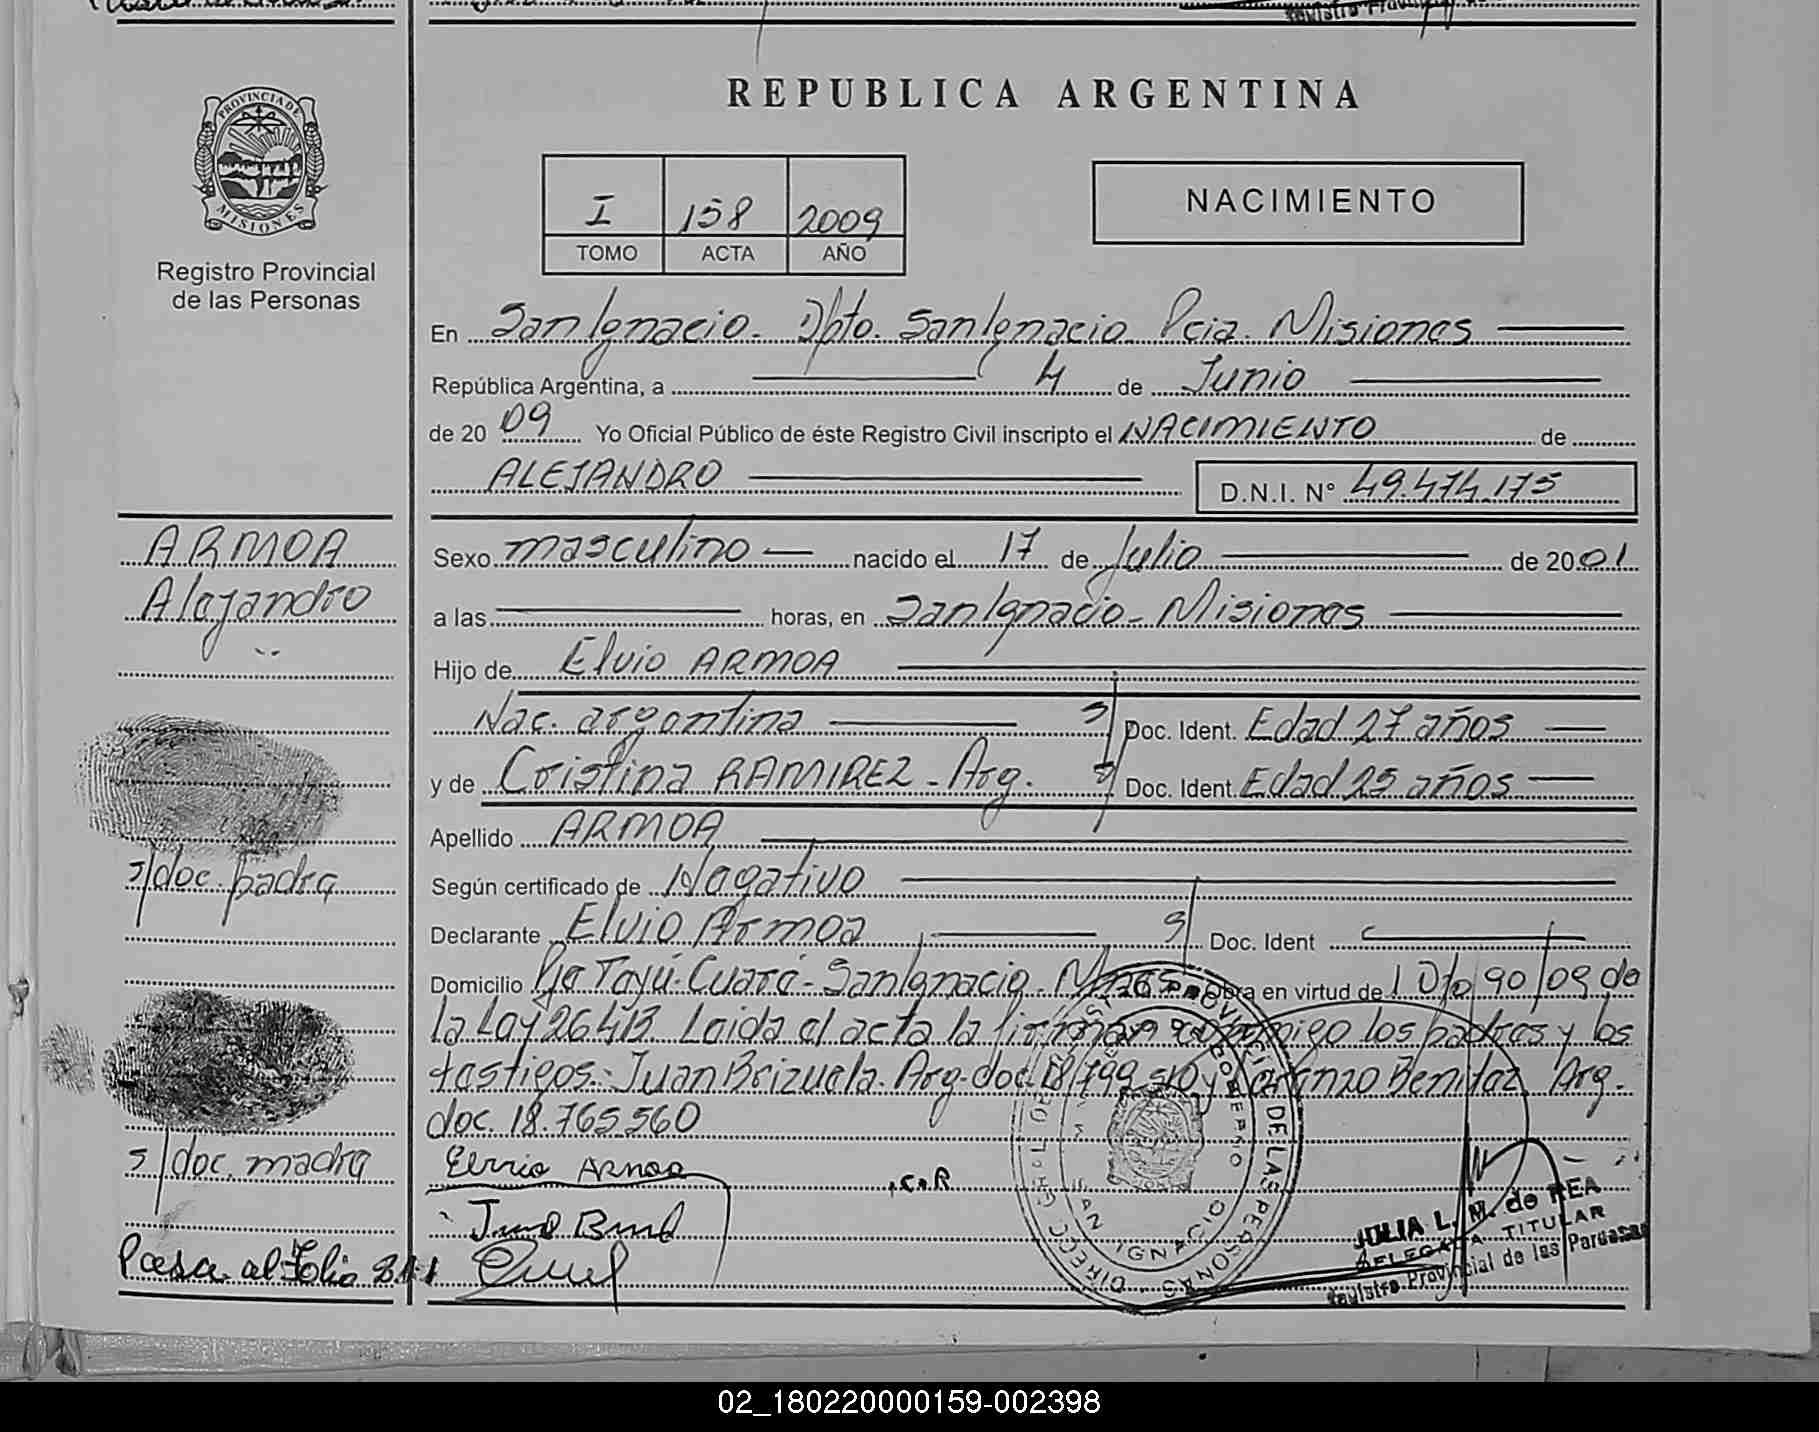 REPUBLICA ARGENTINA
PROVINCIA DE
MISIONES
Registro Provincial
de las Personas
I 158 2009
TOMO ACTA AÑO
NACIMIENTO
En San Ignacio. Dpto. San Ignacio Pcia. Misiones
República Argentina, a 4 de Junio
de 20 09 Yo Oficial Público de éste Registro Civil inscripto el NACIMIENTO de
ALEJANDRO D.N.I. N° 49.474.175
ARMOA
Alejandro
Sexo masculino nacido el 17 de Julio de 2001
a las horas, en San Ignacio - Misiones
Hijo de Elvio ARMOA
Nac. argentina s/ Doc. Ident. Edad 27 años
y de Cristina RAMIREZ - Arg. s/ Doc. Ident. Edad 25 años
Apellido ARMOA
Según certificado de Negativo
s/doc. padre
Declarante Elvio Armoa s/ Doc. Ident
Domicilio Tayú-Cuaré - San Ignacio. Mnes. Obra en virtud de 90/09 de
la Ley 26.413. Leida el acta la firman conmigo los padres y los
testigos: Juan Brizuela. Arg. doc. 18.799 y Benitez Arg.
doc. 18.765.560
s/doc. madre
Elvio Armoa
C.R
Pasa al folio
DIRECC. GRAL. DE PROVINCIAL DE LAS PERSONAS
SAN IGNACIO
JULIA L. M. de REA
DELEGADA TITULAR
Registro Provincial de las Personas
02_180220000159-002398